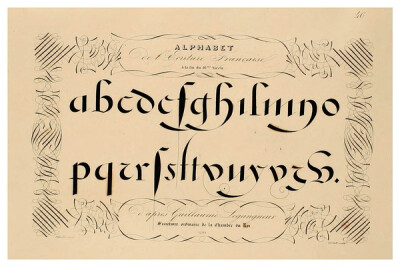 ALPHABET
de l'Ecriture Francaise
à la fin du 16me Siècle.
abcdefghilmno
pqrrsſsttvuxyzG.
d'après Guillaume Legangneur
Secrétaire ordinaire de la Chambre du Roi